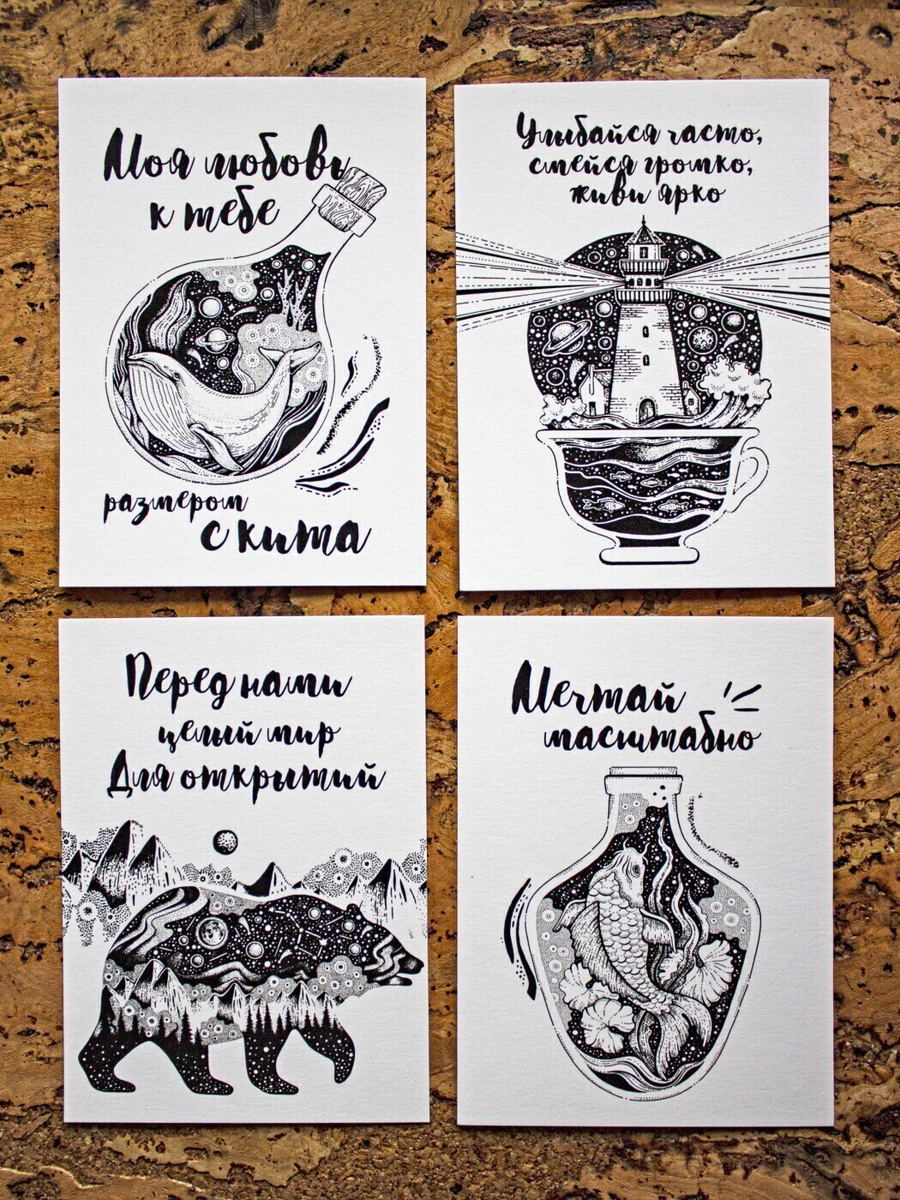 Моя любовь
к тебе
размером
с кита
Улыбайся часто,
смейся громко,
живи ярко
Перед нами
целый мир
Для открытий
Мечтай
масштабно